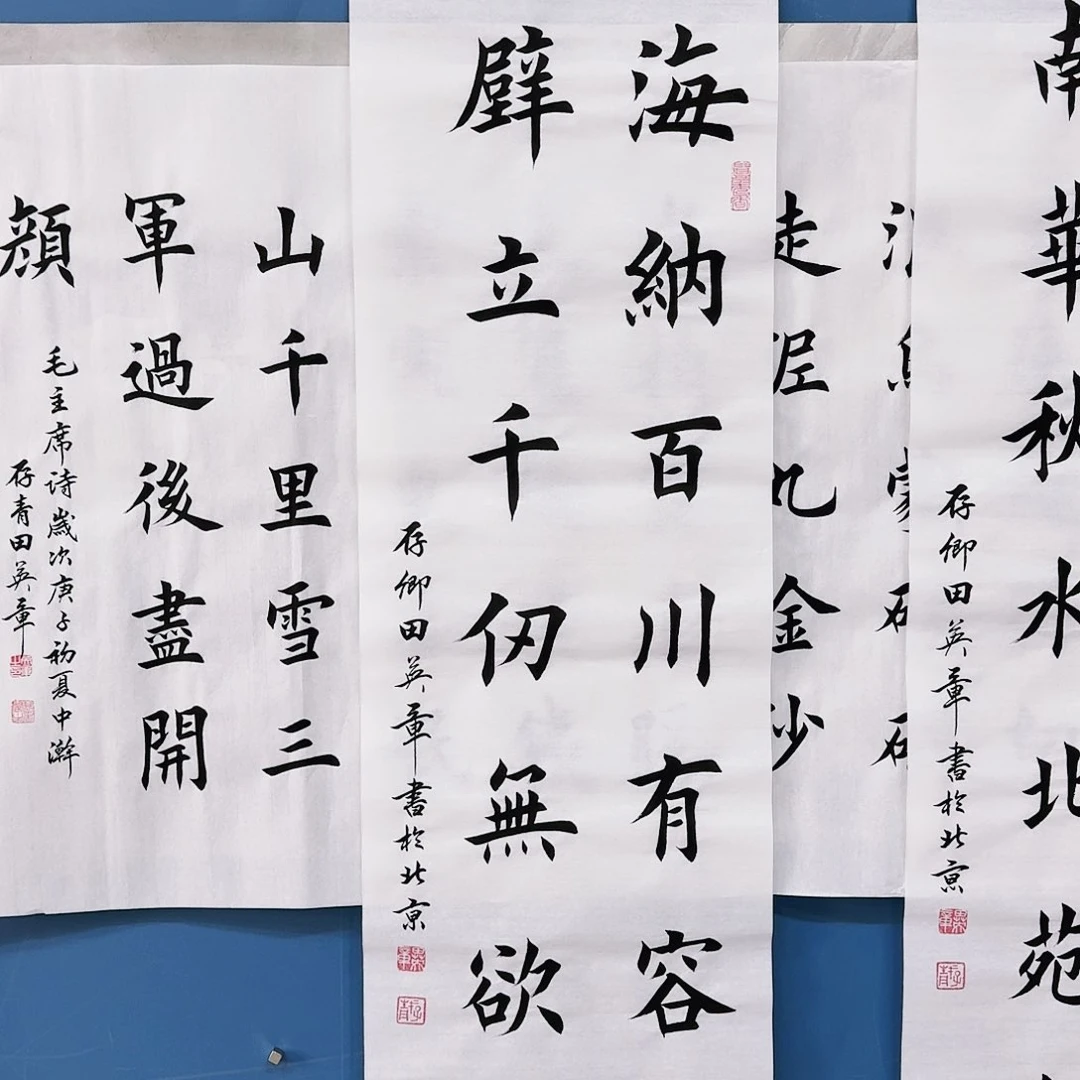 南華秋水北苑
存卿田英章書於北京
走泥丸金沙
海納百川有容
壁立千仞無欲
存卿田英章書於北京
山千里雪三
軍過後盡開
顔
毛主席诗歲次庚子初夏中澣
存青田英章